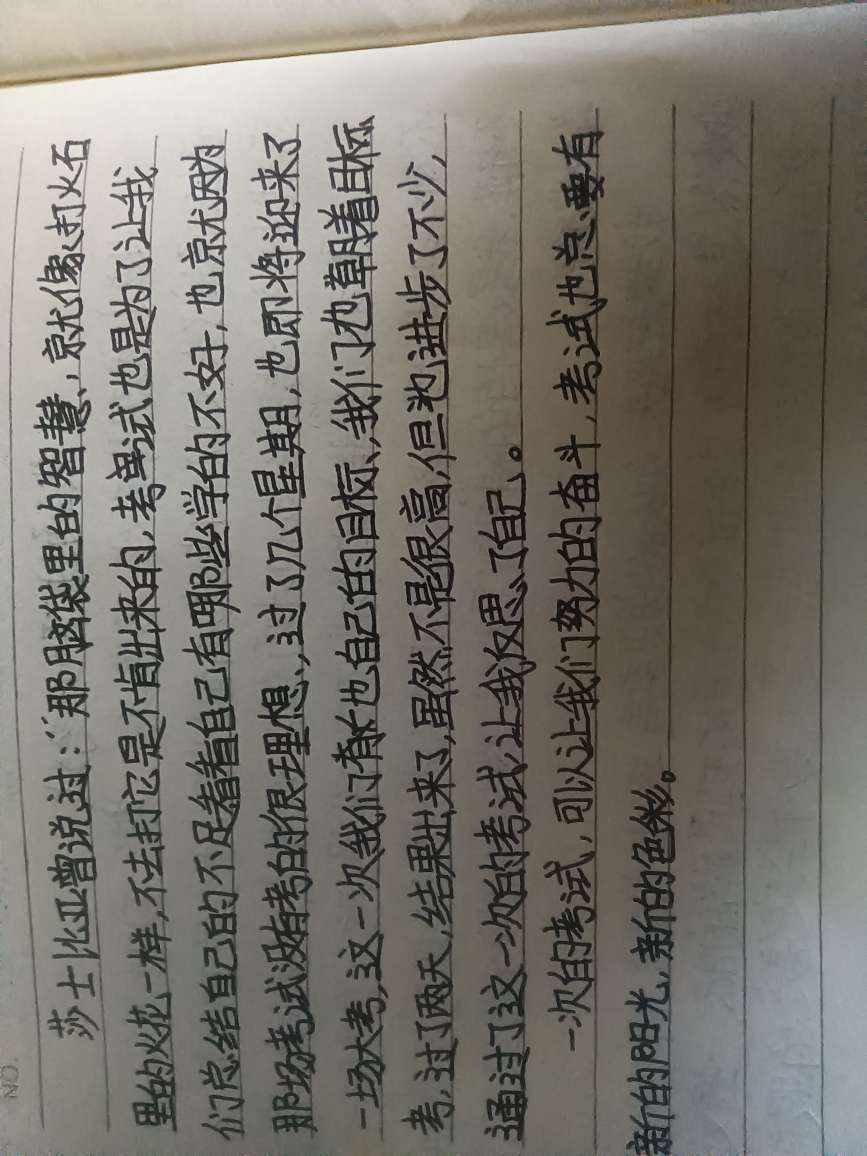 NO.
莎士比亚曾说过：“那脑袋里的智慧、就像打火石
里的火花一样，不去打它是不肯出来的，考试也是为了让我
们总结自己的不足看看自己有哪些学的不好，也就因为
那场考试没有考的很理想、，过了几个星期，也即将迎来了
一场大考，这一次我们有也自己的目标、我们也朝着目标
考，过了两天，结果出来了，虽然不是很高，但也进步了不少，
通过了这一次的考试，让我反思了自己。
一次的考试，可以让我们努力的奋斗，考试也总要有
新的阳光，新的色彩。